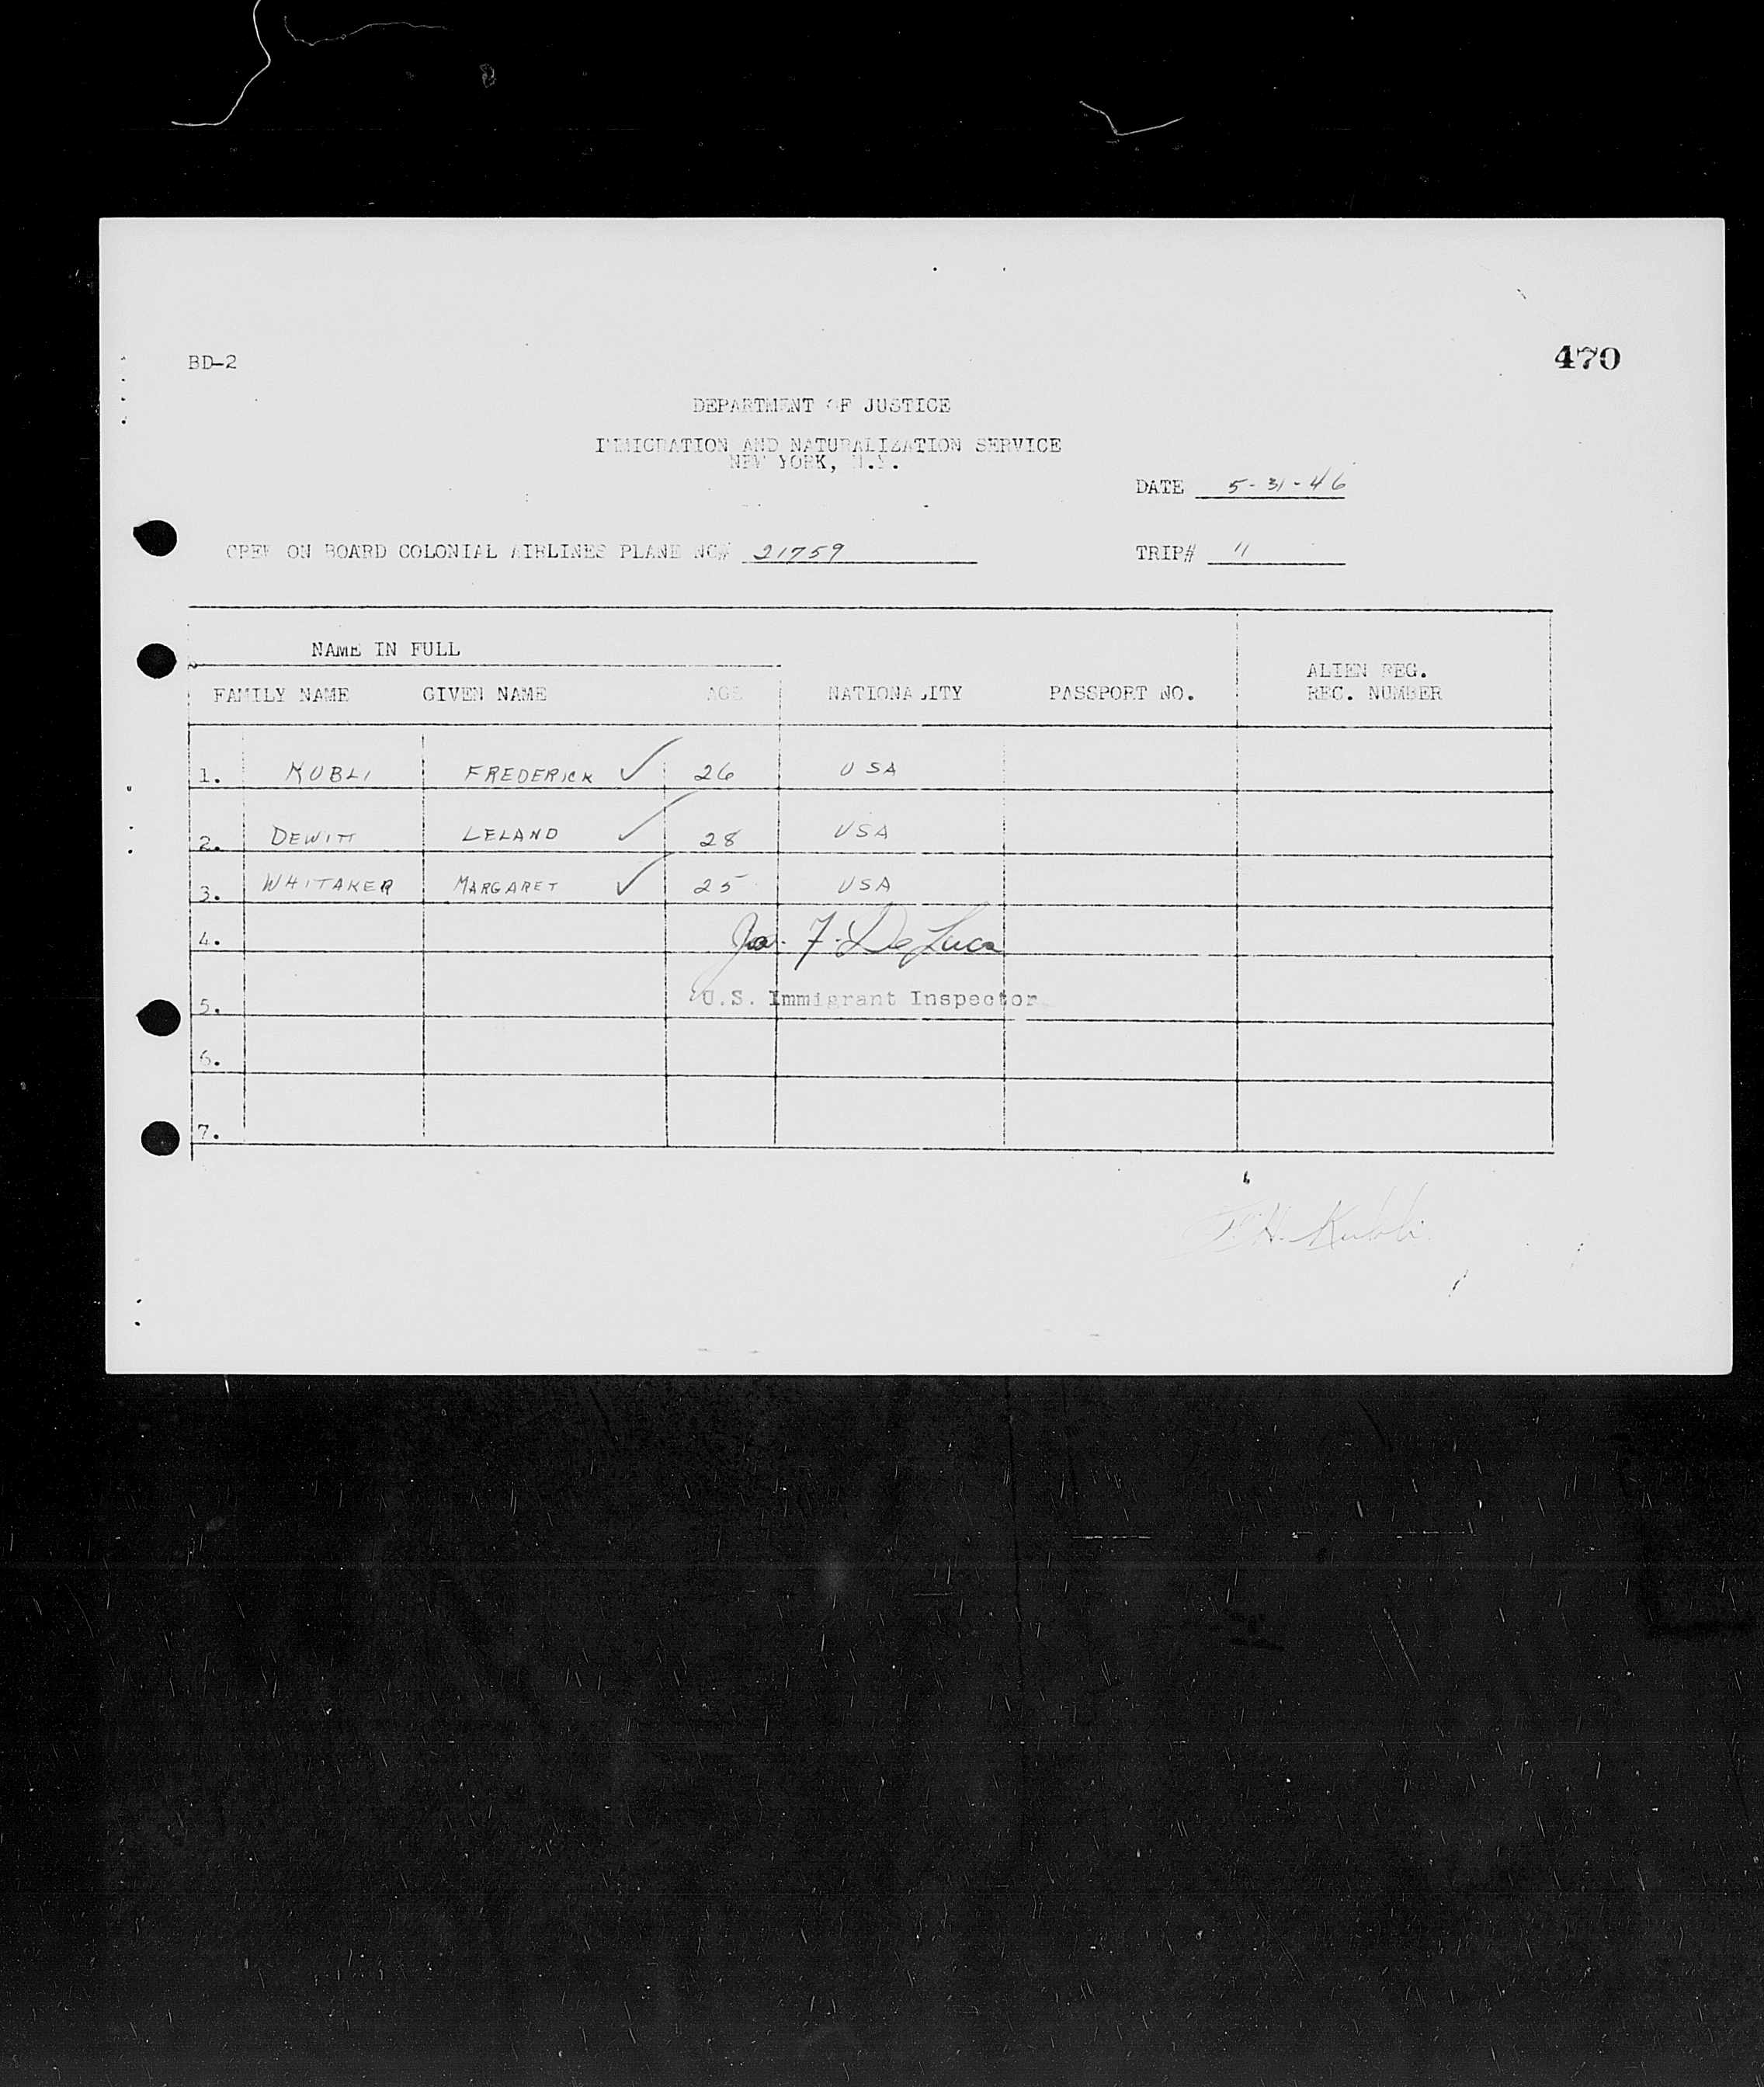 BD-2
470
DEPARTMENT OF JUSTICE
IMMIGRATION AND NATURALIZATION SERVICE
NEW YORK, N.Y.
DATE 5-31-46
CREW ON BOARD COLONIAL AIRLINES PLANE NO# 21759 TRIP# 11
NAME IN FULL
FAMILY NAME GIVEN NAME AGE NATIONALITY PASSPORT NO. ALIEN REG. REC. NUMBER
1. KUBLI FREDERICK ✓ 26 USA
2. DEWITT LELAND ✓ 28 USA
3. WHITAKER MARGARET ✓ 25 USA
4. Jos. F. De Luca
5. U.S. Immigrant Inspector
6.
7.
F.H. Kubli